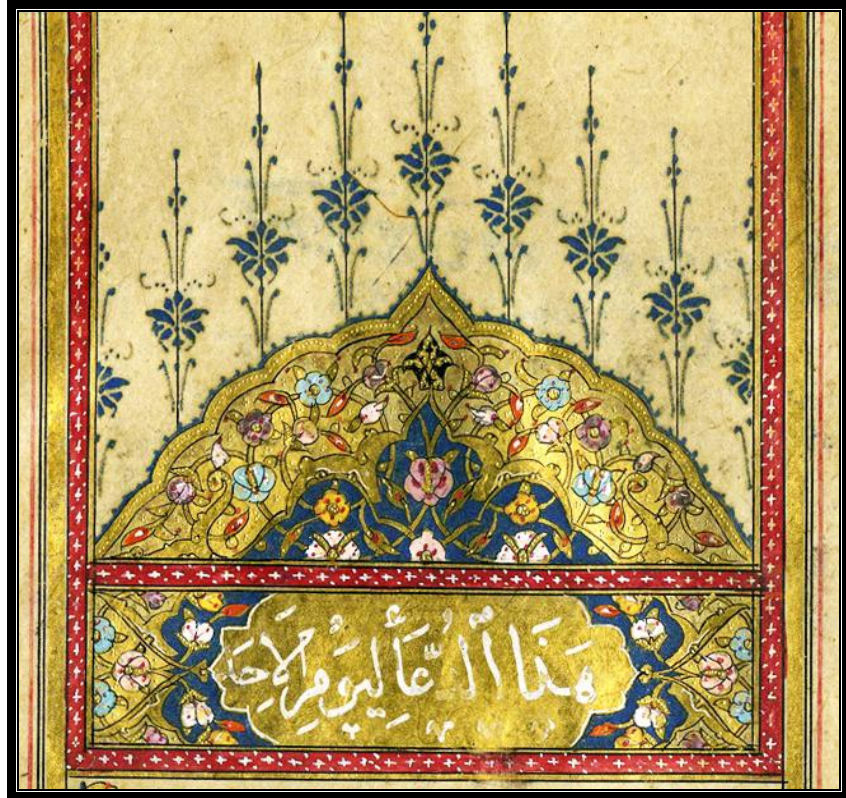 هَذَا الدُّعَأِ لِيَوْمِ الْاَحَد